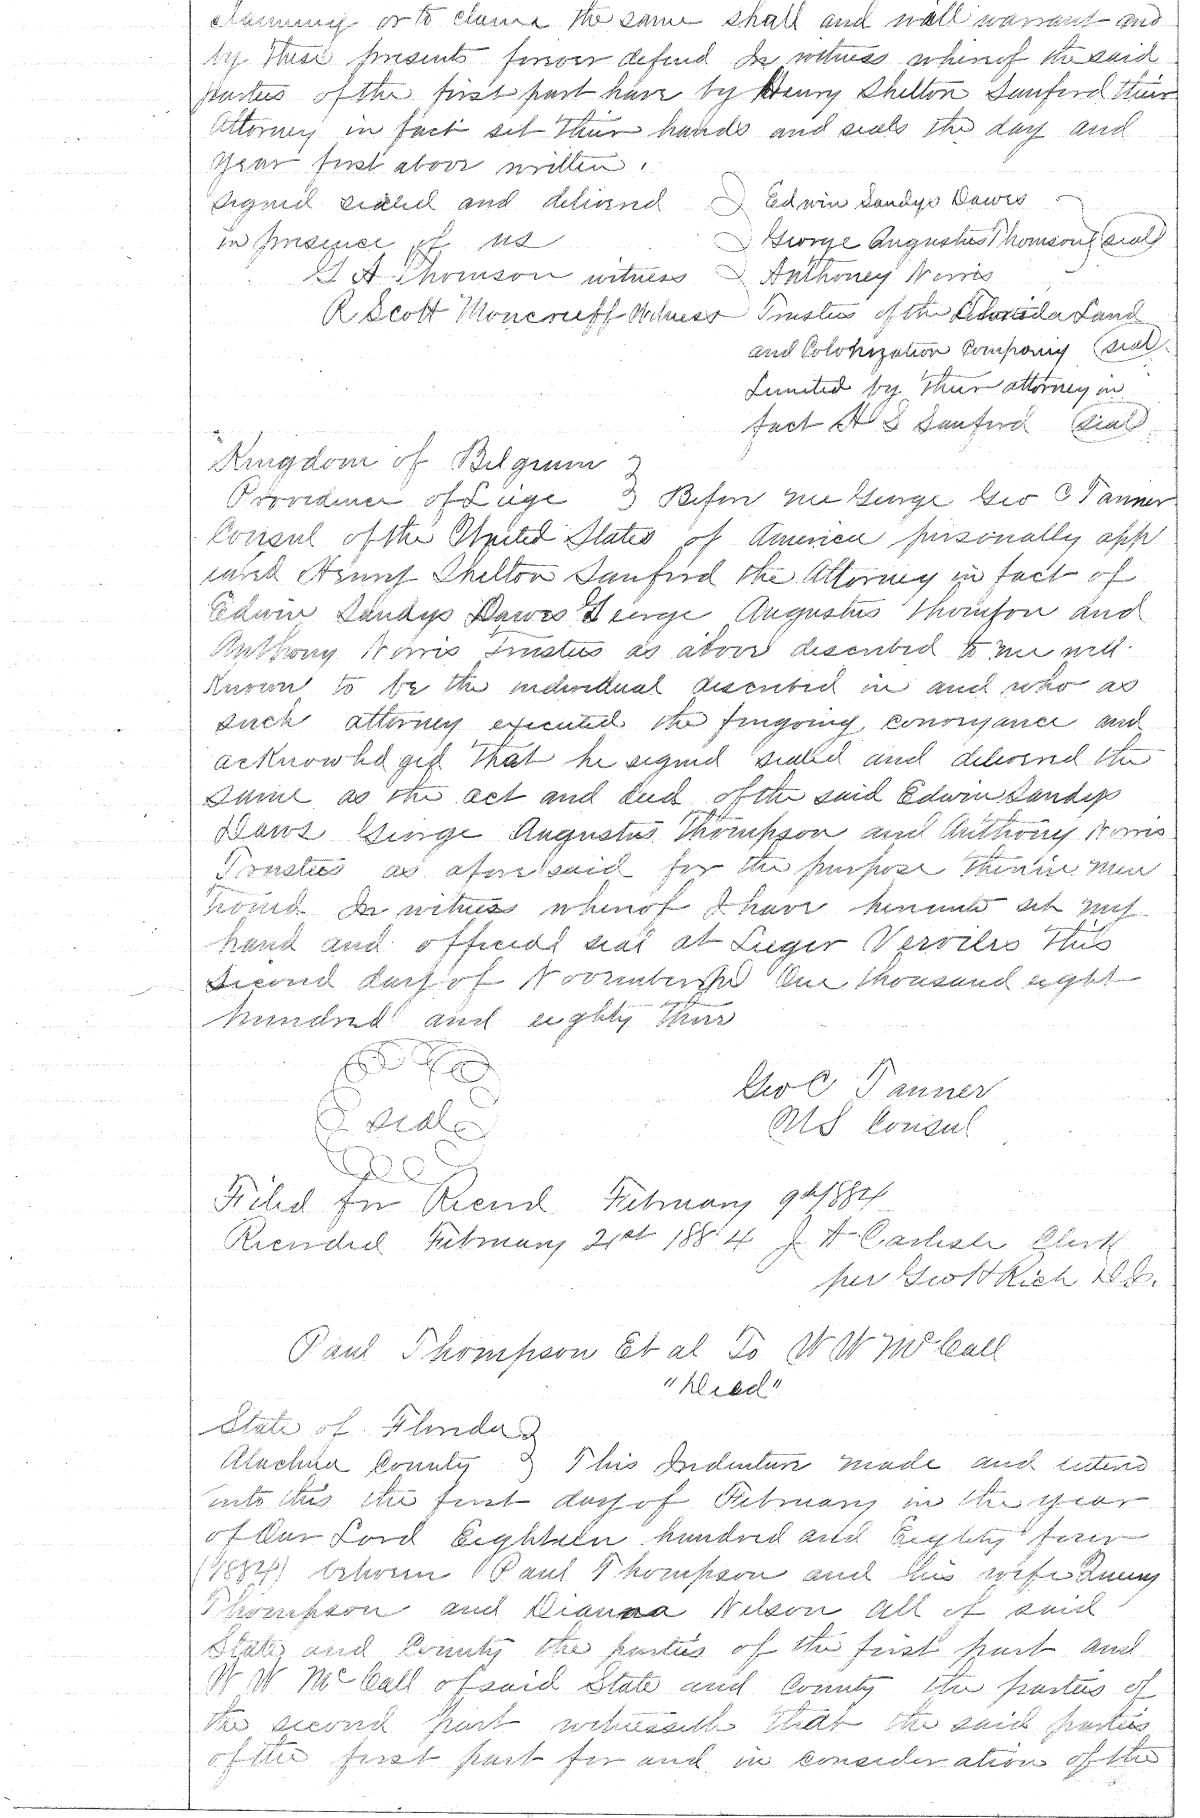 claiming or to claim the same shall and will warrant and
by these presents forever defend In witness whereof the said
parties of the first part have by Henry Shelton Sanford their
Attorney in fact set their hands and seals the day and
year first above written.
signed sealed and delivered } Edwin Sandys Dawes
in presence of us } George Augustus Thomson (seal)
G A Thomson witness } Anthoney Norris
R Scott Moncrieff Witness Trustees of the Florida Land
and Colonization Company (seal)
Limited by their attorney in
fact H S Sanford (seal)
Kingdom of Belgium }
Providence of Liege } Before me George Geo C Tanner
Consul of the United States of America personally app
eared Henry Shelton Sanford the Attorney in fact of
Edwin Sandys Dawes George Augustus Thomson and
Anthony Norris Trustees as above described to me well
Known to be the individual described in and who as
such attorney executed the foregoing conveyance and
acknowledged that he signed sealed and delivered the
same as the act and deed of the said Edwin Sandys
Daws George Augustus Thompson and Anthony Norris
Trustees as afore said for the purpose therein men
tioned In witness whereof I have hereunto set my
hand and official seal at Lieger Verviers this
second day of November One thousand eight
hundred and eighty three
seal
Geo C Tanner
U S Consul
Filed for Record February 9th 1884
Recorded February 21st 1884 J A Carlisle Clerk
per Geo H Rich D.C.
Paul Thompson Et al To W W McCall
"Deed"
State of Florida }
Alachua County } This Indenture made and entered
into this the first day of February in the year
of Our Lord Eighteen hundred and Eighty four
(1884) between Paul Thompson and his wife
Thompson and Dianna Nelson all of said
State and County the parties of the first part and
W W McCall of said State and County the parties of
the second part witnesseth that the said parties
of the first part for and in consideration of the